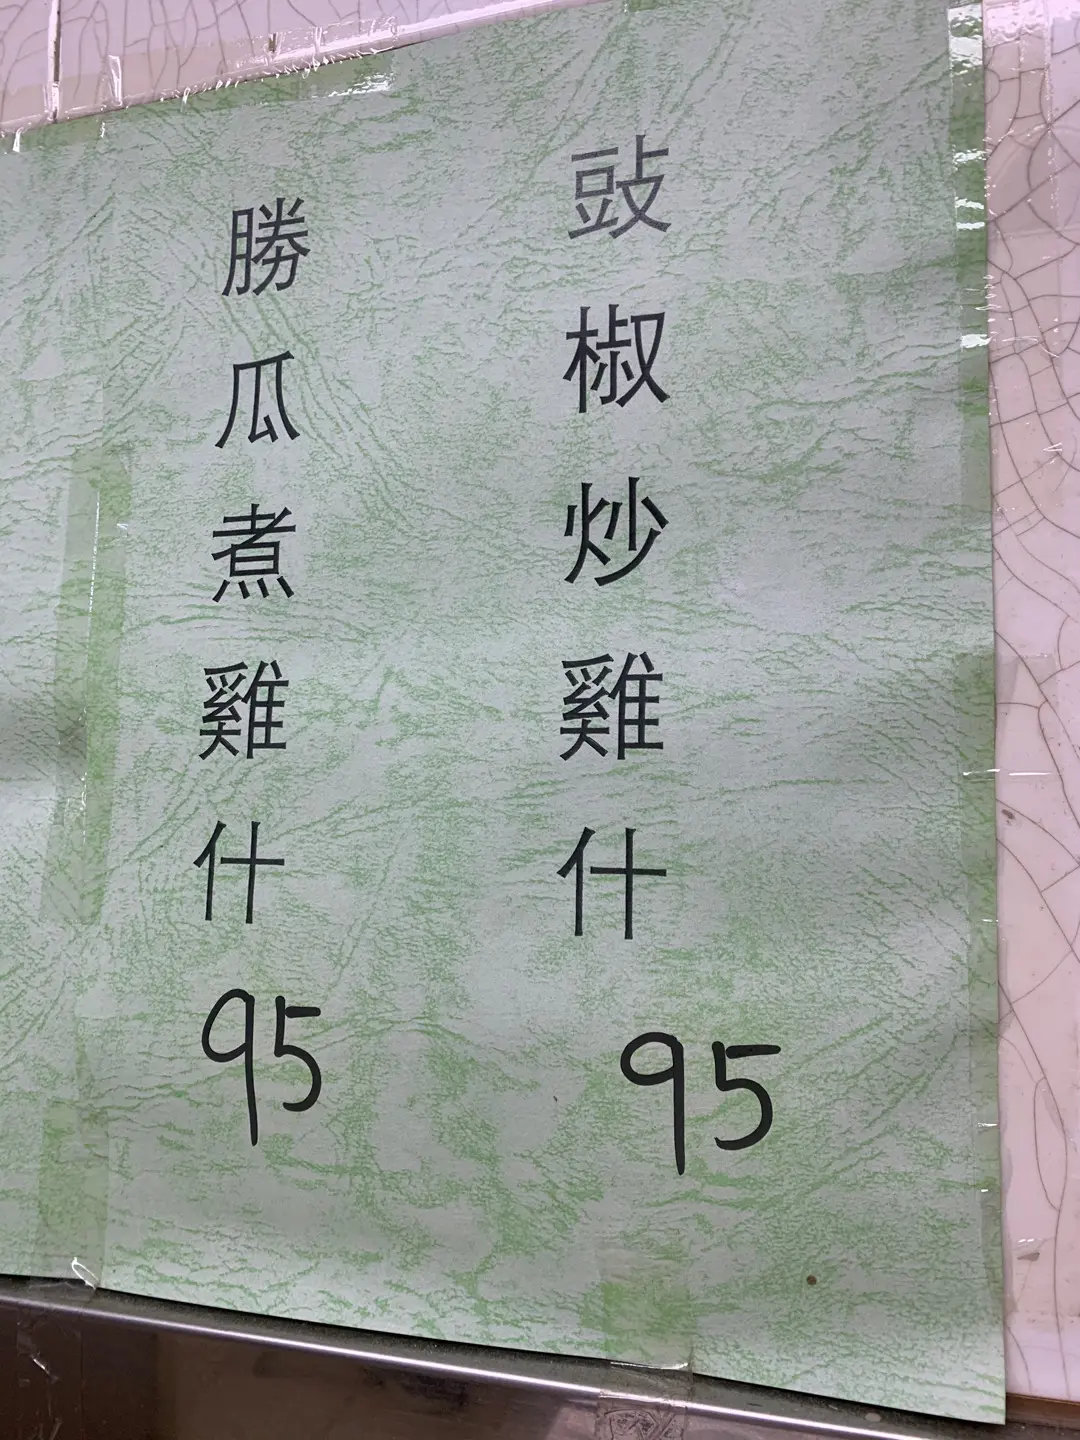 豉椒炒雞什
95
勝瓜煮雞什
95